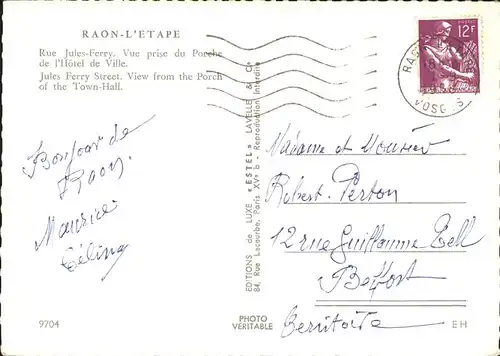 RAON-L'ETAPE
Rue Jules-Ferry. Vue prise du Porche
de l'Hôtel de Ville.
Jules Ferry Street. View from the Porch
of the Town-Hall.
12F
VOSGES
Bonjour de
Raon.
Maurice
Céline
EDITIONS de LUXE «ESTEL» LAVELLE & Cie
84, Rue Lacourbe, Paris XVe - Reproduction Interdite
Madame et Monsieur
Robert Perton
12 rue Guillaume Tell
Belfort
Territoire
9704
PHOTO
VERITABLE
EH